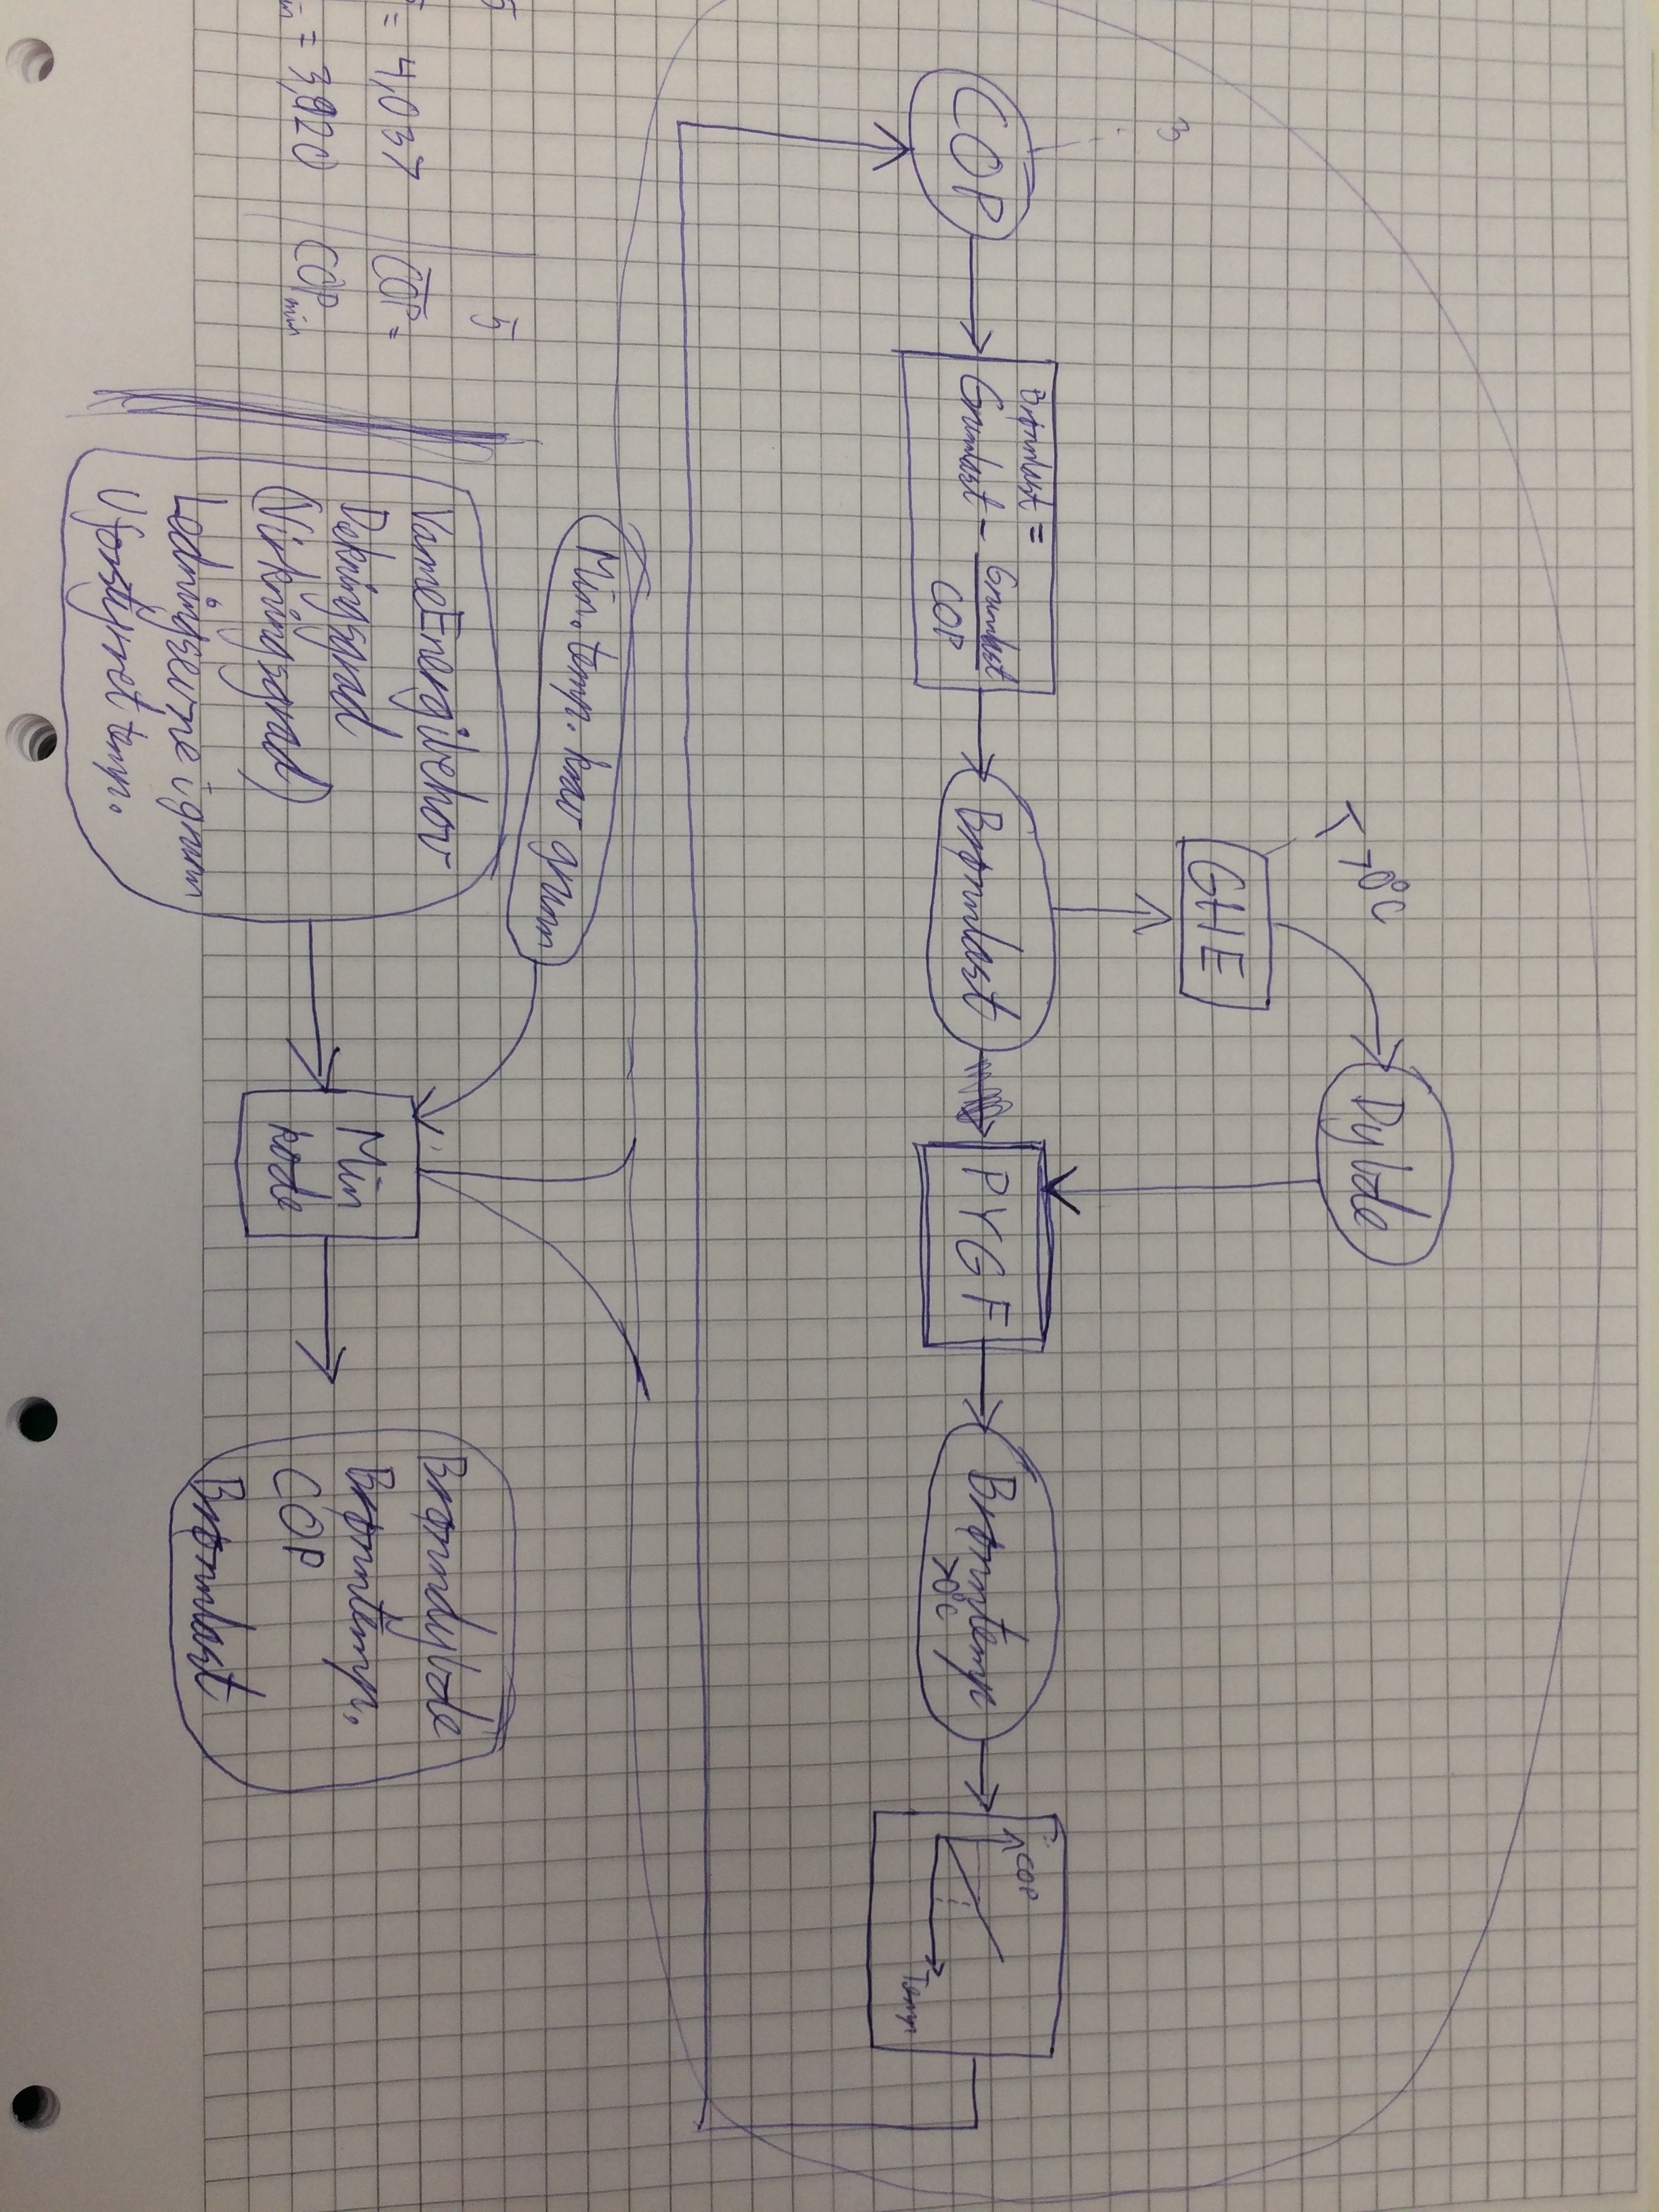 Dybde
T >0°C
GHE
3
COP
Brønnlast =
Grunnlast - Grunnlast
COP
Brønnlast
PYGF
Brønntemp
>0°C
COP
Temp
Min. temp. krav grunn
5
= 4,037
= 3,920
5
COP =
COP min
VarmeEnergibehov
Dekningsgrad
(Virkningsgrad)
Ledningsevne i grunn
Uforstyrret temp.
Min
kode
Brønndybde
Brønntemp.
COP
Brønnlast